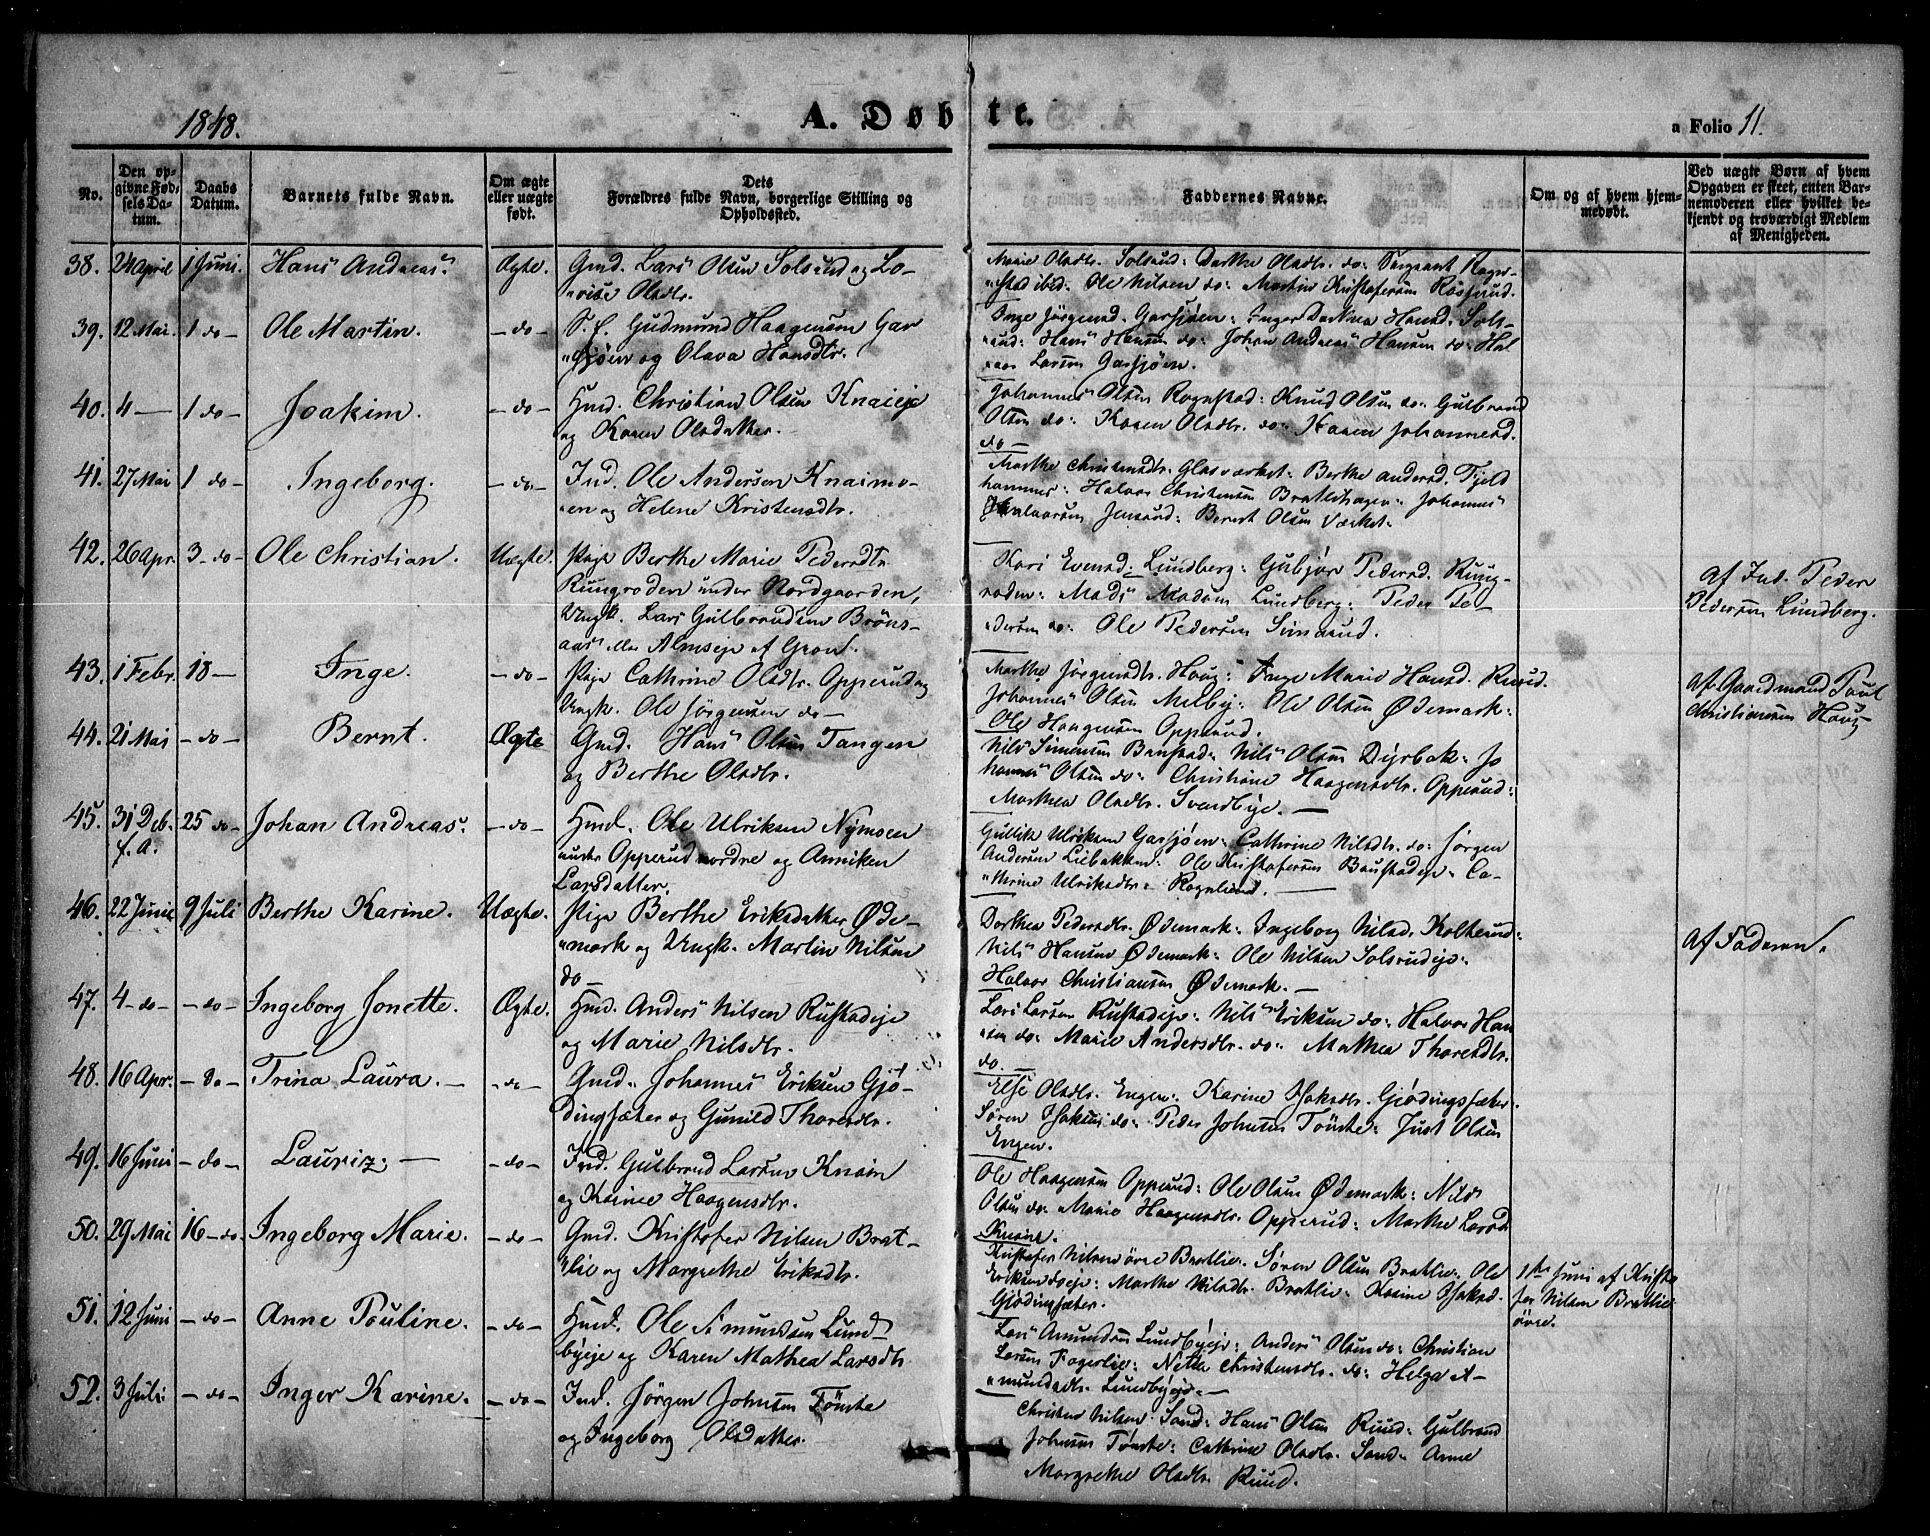 1848.
A. Døbte.
a Folio 11.
No.
Den op-
givne Fød-
sels Da-
tum.
Daabs
Datum.
Barnets fulde Navn.
Om ægte
eller uægte
født.
Dets
Forældres fulde Navn, borgerlige Stilling og
Opholdssted.
Faddernes Navne.
Om og af hvem hjem-
medøbt.
Ved uægte Børn af hvem
Opgaven er skeet, enten Bar-
nemoderen eller hvilket be-
kjendt og troværdigt Medlem
af Menigheden.
38. 24 April 1 Juni. Hans Andreas. Ægte. Gmd. Lars Olsen Solsrud og Lo-
"vise Olsdtr.
Marie Olsdtr. Solsrud: Dorthe Olsdtr. do: Sergeant Rogn-
"stad ibid: Ole Nilsen do: Martin Kristofersen Røsterud.
39. 12 Mai. 1 do- Ole Martin. -do- S. f. Gudmund Haagensen Gar
"sjøen og Olava Hansdtr.
Inge Jørgensd. Garsjøen: Inger Dorthea Hansd. Sols-
"rud: Hans Hansen do: Johan Andreas Hansen do: Hal
"vor Larsen Garsjøen.
40. 4 - 1 do- Joakim. -do- Hmd. Christian Olsen Knaieje
og Karen Olsdatter.
Johannes Olsen Rognstad: Knud Olsen do: Gulbrand
Olsen do: Karen Olsdtr. do: Karen Johannesd.
do -
41. 27 Mai 1 do- Ingeborg. -do- Ind. Ole Andersen Knaimo-
"en og Helene Kristensdtr.
Marthe Christensdtr. Glasværket: Berthe Andersd. Fjeld
hammer: Halvor Christensen Bratlihagen: Johannes
Halvorsen Jensrud: Bernt Olsen Værket.
42. 26 Apr. 3 -do- Ole Christian. Uægte. Pige Berthe Marie Pedersdtr
Rungroden under Nordgaarden,
Ungk. Lars Gulbrandsen Brøns-
aas eller Almseje af Gran.
Kari Evensd. Lundberg: Gubjør Pedersd. Rung-
roden: Mads Madsen Lundberg: Peder Pe-
"dersen do: Ole Pedersen Simarud.
Af Ind. Peder
Pedersen Lundberg.
43. 1 Febr. 18 - Inge. -do- Pige Cathrine Olsdtr. Opperud og
Ungk. Ole Jørgensen do -
Marthe Jørgensdtr. Haug: Inge Marie Hansd. Ruud.
Johannes Olsen Melby: Ole Olsen Ødemark:
Ole Haagensen Opperud.
Af Gaardmand Poul
Christiansen Haug
44. 21 Mai -do- Bernt. Ægte Gmd. Hans Olsen Tangen
og Berthe Olsdtr.
Nils Simensen Baustad: Nils Olsen Dyrbek: Jo
hannes Olsen do: Christiane Haagensdtr. Opperud:
Marthea Olsdtr. Svendbye. -
45. 31 Deb. f. A. 25 do- Johan Andreas. -do- Hmd. Ole Ulriksen Nymoen
under Opperud nordre og Anniken
Larsdatter.
Gullik Ulriksen Garsjøen: Cathrine Nilsdtr. do: Jørgen
Andersen Liebakken: Ole Kristofersen Baustadeje: Ca-
"thrine Ulriksdtr. Rognlund. -
46. 22 Juni 9 Juli Berthe Karine. Uægte. Pige Berthe Eriksdatter Øde-
"mark og Ungk. Martin Nilsen
do -
Dorthea Pedersdtr. Ødemark: Ingeborg Nilsd. Kolterud:
Nils Hansen Ødemark: Ole Nilsen Solsrudeje:
Halvor Christiansen Ødemark. -
Af Faderen.
47. 4 -do- -do- Ingeborg Jonette. Ægte. Hmd. Anders Nilsen Rustadeje
og Marie Nilsdtr.
Lars Larsen Rustadeje: Nils Eriksen do: Halvor Han
"sen do: Marie Andersdtr. do: Mathea Thoresdtr.
do. -
48. 16 Apr. - do - Trina Laura. - -do- Gmd. Johannes Eriksen Gjø-
dingsæter og Gunild Thoresdtr.
Else Olsdtr. Engen: Karine Isaksdtr. Gjødingsæter:
Søren Isaksen do: Peder Johnsen Tømte: Just Olsen
Engen.
49. 16 Juni -do- Lauriz: - -do- Ind. Gulbrand Larsen Knaien
og Karine Haagensdtr.
Ole Haagensen Opperud: Ole Olsen Ødemark: Nils
Olsen do: Marie Haagensdtr. Opperud: Marthe Larsd.
Knaien.
50. 29 Mai 16 -do. Ingeborg Marie. -do- Gmd. Kristofer Nilsen Brat-
"lie og Margrethe Eriksdtr.
Kristofer Nilsen øvre Bratlie. Søren Olsen Bratlie. Ole
Eriksen doeje: Marthe Nilsdtr. Bratlie: Karine Isaksd.
Gjødingsæter.
1ste Juni af Kristo
fer Nilsen Bratlie
øvre.
51. 12 Juni -do- Anne Pouline. -do- Hmd. Ole Amundsen Lund-
byeje og Karen Mathea Larsdtr.
Lars Amundsen Lundbyeje: Anders Olsen do: Christian
Larsen Fagerlie: Nette Christensdtr. do: Helga A-
"mundsdtr. Lundbyeje. -
52. 3 Juli. -do- Inger Karine. -do- Ind. Jørgen Johnsen Tømte
og Ingeborg Olsdatter.
Christen Nilsen Sand: Hans Olsen Ruud: Gulbrand
Johnsen Tømte: Cathrine Olsdtr. Sand: Anne
Margrethe Olsdtr. Ruud.